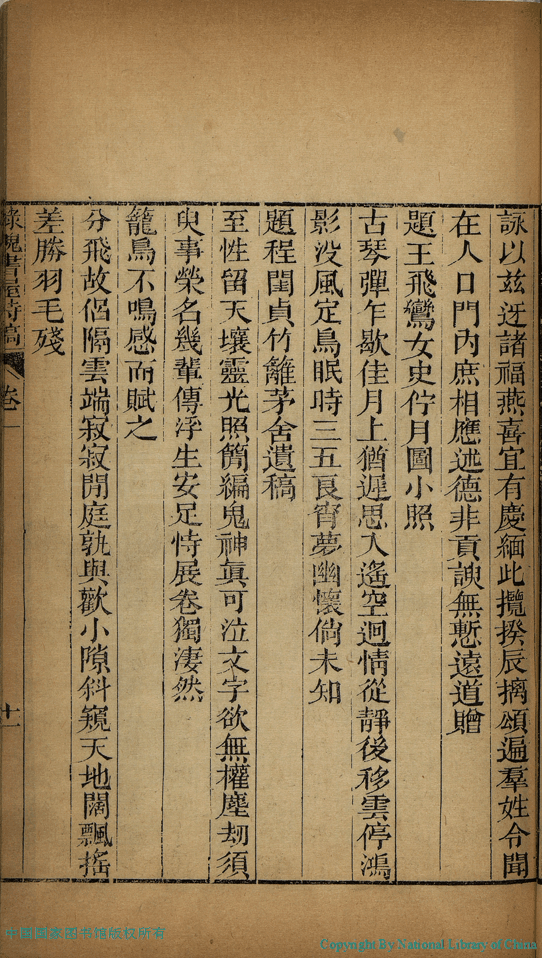 詠以茲迓諸福燕喜宜有慶緬此攬揆辰摛頌遍羣姓令聞
在人口門內庶相應述德非貢諛無慙遠道贈
題王飛鸞女史佇月圖小照
古琴彈乍歇佳月上猶遲思入遙空迥情從靜後移雲停鴻
影没風定鳥眠時三五良宵夢幽懷倘未知
題程閨貞竹籬茅舍遺稿
至性留天壤靈光照簡編鬼神眞可泣文字欲無權塵劫須
臾事榮名幾輩傳浮生安足恃展卷獨淒然
籠鳥不鳴感而賦之
分飛故侶隔雲端寂寂閒庭孰與歡小隙斜窺天地闊飄搖
差勝羽毛殘
綠槐書屋詩稿 卷一 十一
中国国家图书馆版权所有
Copyright By National Library of China